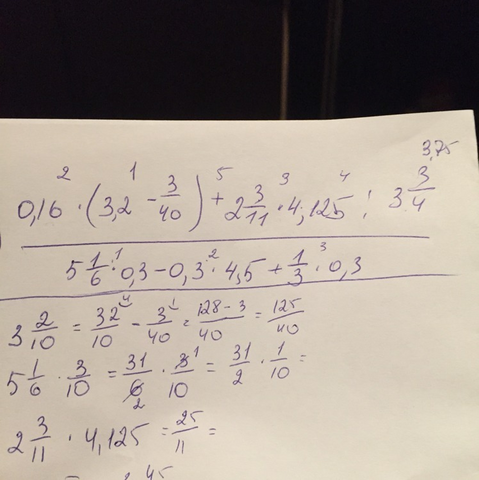 3,75
2 1 5 3 4
0,16 · (3,2 - 3/40) + 2 3/11 · 4,125 : 3 3/4
1 2 3
5 1/6 · 0,3 - 0,3 · 4,5 + 1/3 · 0,3
3 2/10 = 32/10 4 - 3/40 1 = 128-3/40 = 125/40
5 1/6 · 3/10 = 31/6 2 · 3/10 1 = 31/2 · 1/10 =
2 3/11 · 4,125 = 25/11 =
45